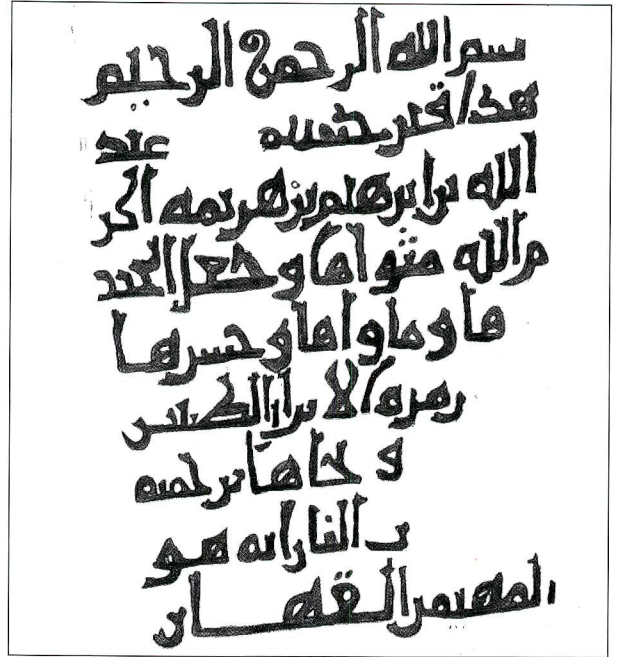 بسم الله الرحمن الرحيم
هذا قبر
الله بن ابرهيم اكر
م الله مثواها وجعل
ها وماواها وحشرها
زمرة الابرار الطيبين
و نجاها برحمته
النار انه هو
المهيمن القهار